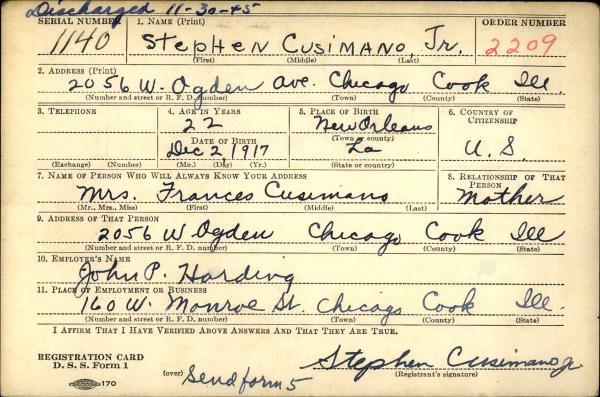 Discharged 11-30-45
SERIAL NUMBER 1. NAME (Print) ORDER NUMBER
1140 Stephen Cusimano, Jr. 2209
(First) (Middle) (Last)
2. ADDRESS (Print)
2056 W. Ogden Ave. Chicago Cook Ill.
(Number and street or R. F. D. number) (Town) (County) (State)
3. TELEPHONE 4. AGE IN YEARS 5. PLACE OF BIRTH 6. COUNTRY OF CITIZENSHIP
22 New Orleans
(Town or county)
DATE OF BIRTH
Dec 2 1917 La U. S.
(Exchange) (Number) (Mo.) (Day) (Yr.) (State or country)
7. NAME OF PERSON WHO WILL ALWAYS KNOW YOUR ADDRESS 8. RELATIONSHIP OF THAT PERSON
Mrs. Frances Cusimano Mother
(Mr., Mrs., Miss) (First) (Middle) (Last)
9. ADDRESS OF THAT PERSON
2056 W Ogden Chicago Cook Ill
(Number and street or R. F. D. number) (Town) (County) (State)
10. EMPLOYER'S NAME
John P. Harding
11. PLACE OF EMPLOYMENT OR BUSINESS
160 W. Monroe St. Chicago Cook Ill.
(Number and street or R. F. D. number) (Town) (County) (State)
I AFFIRM THAT I HAVE VERIFIED ABOVE ANSWERS AND THAT THEY ARE TRUE.
REGISTRATION CARD
D. S. S. Form 1
Stephen Cusimano Jr.
170 (over) Send form 5 (Registrant's signature)